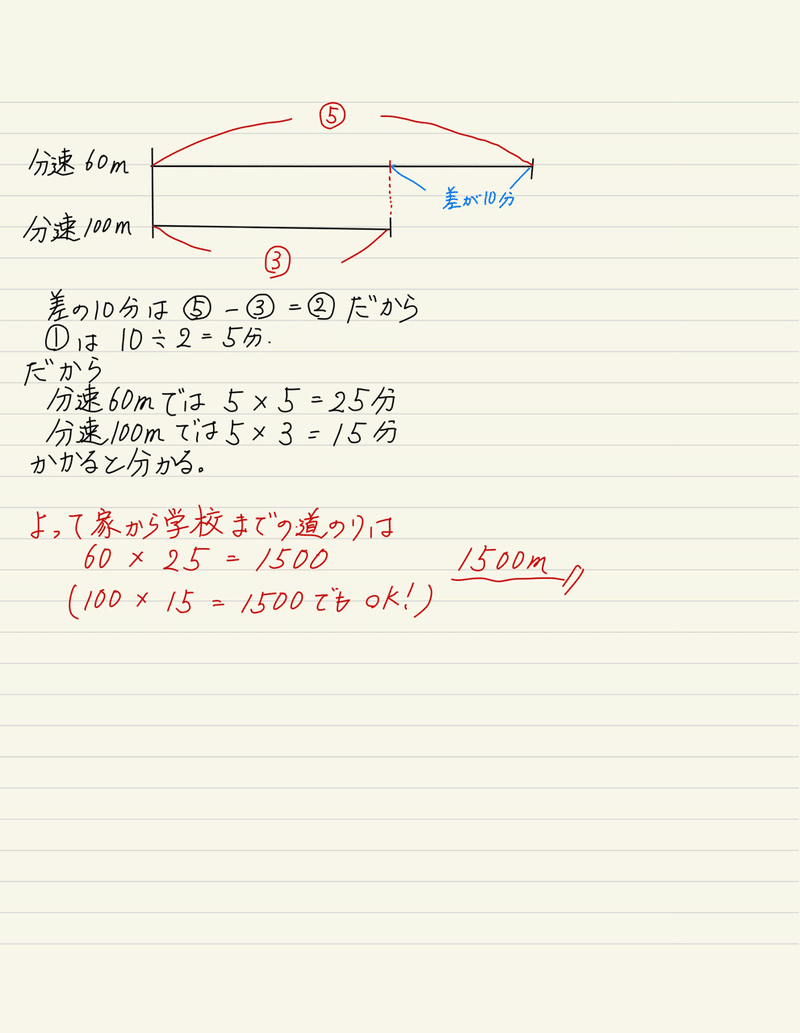 ⑤
分速60m
差が10分
分速100m
③
差の10分は ⑤－③＝②だから
①は 10÷2＝5分.
だから
分速60mでは 5×5＝25分
分速100mでは5×3＝15分
かかると分かる。
よって家から学校までの道のりは
60×25＝1500 1500m
(100×15＝1500でも OK!)